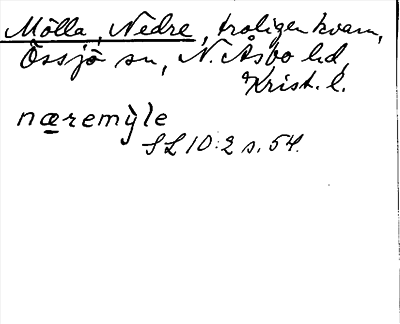 Mölla, Nedre, troligen kvarn,
Össjö sn, N. Åsbo hd,
Krist. l.
næremỳle
SL 10:2 s. 54.